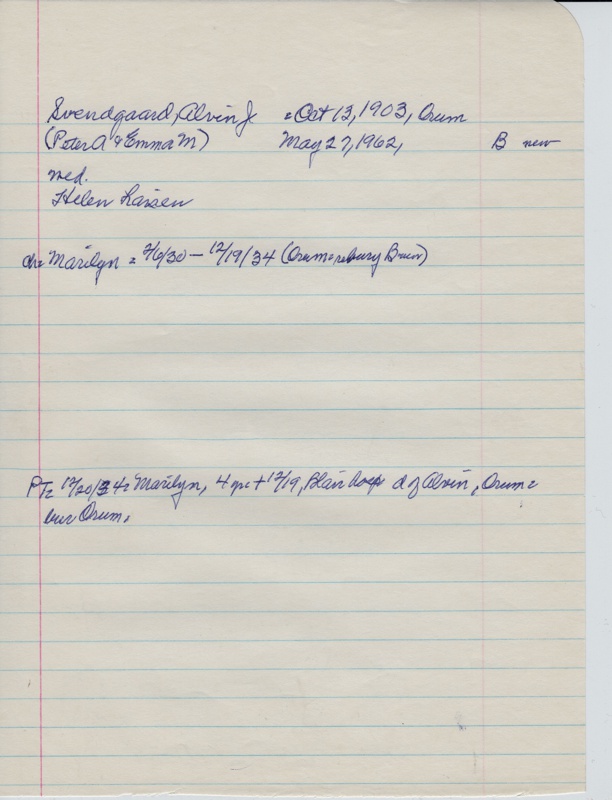 Svendgaard, Alvin J = Oct 13, 1903, Orum
(Peter A & Emma M) May 27, 1962, B new
med.
Helen Larsen
ch= Marilyn = 2/6/30 – 12/19/34 (Orum= rebury B new)
PT= 12/20/34= Marilyn, 4 yrs + 12/19, Blair hosp d of Alvin, Orum=
bur Orum.